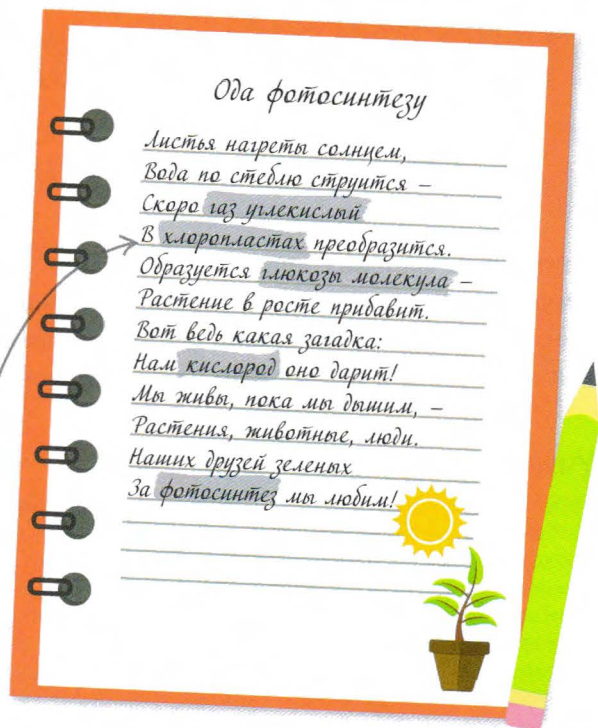 Ода фотосинтезу
Листья нагреты солнцем,
Вода по стеблю струится –
Скоро газ углекислый
В хлоропластах преобразится.
Образуется глюкозы молекула –
Растение в росте прибавит.
Вот ведь какая загадка:
Нам кислород оно дарит!
Мы живы, пока мы дышим, –
Растения, животные, люди.
Наших друзей зеленых
За фотосинтез мы любим!